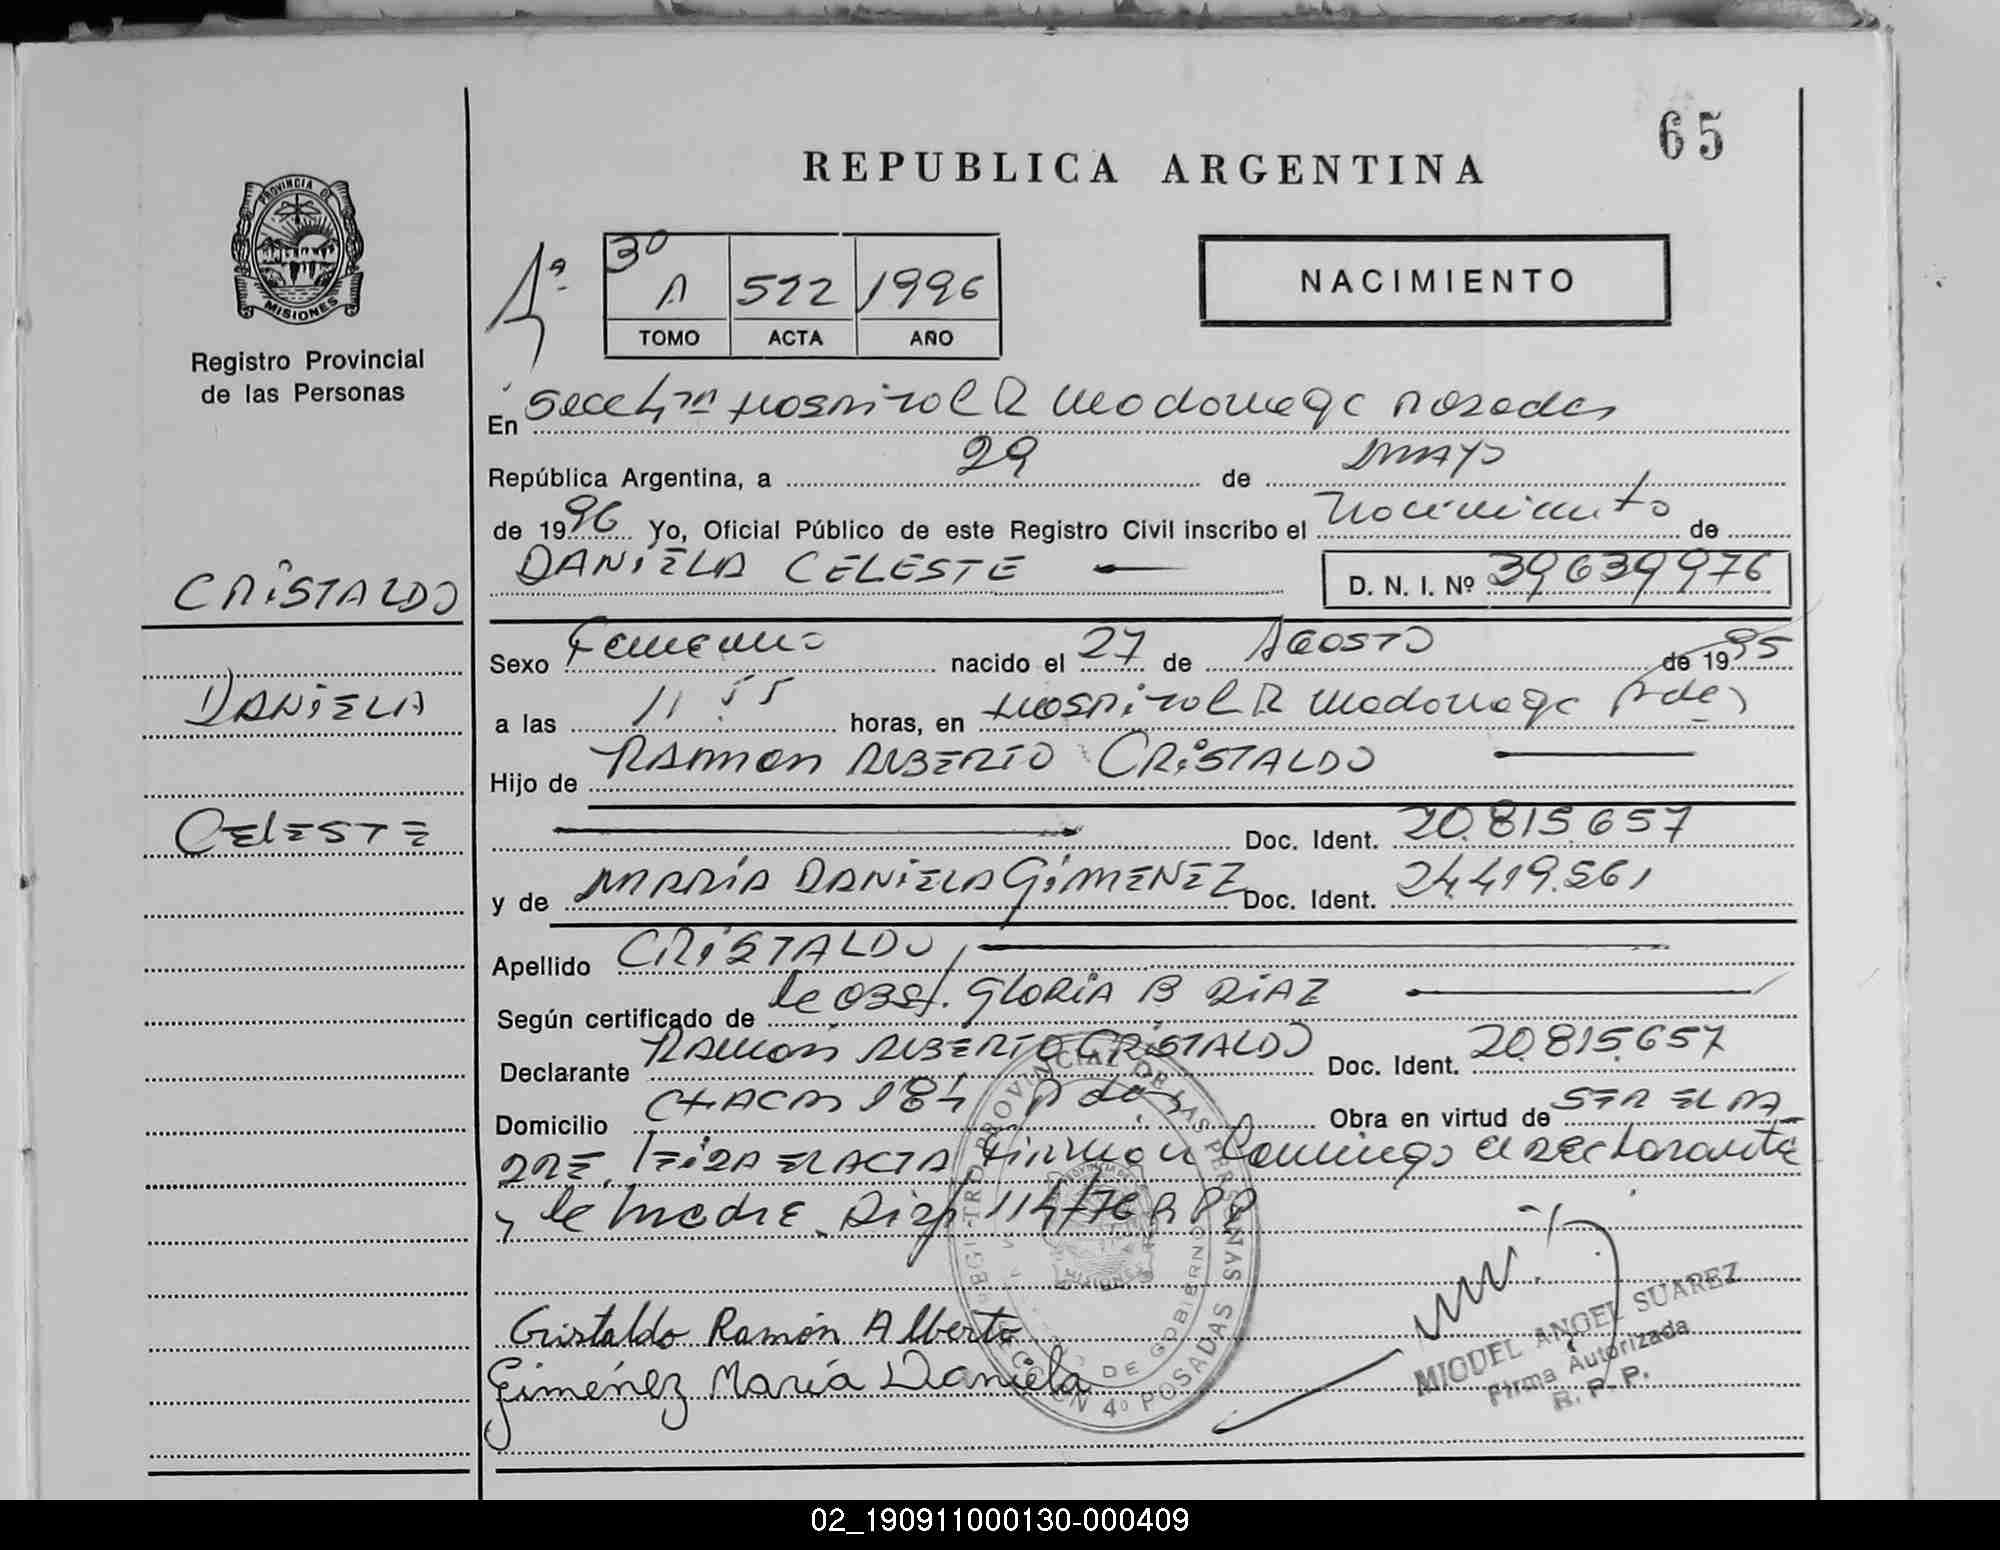 65
REPUBLICA ARGENTINA
PROVINCIA DE
MISIONES
Registro Provincial
de las Personas
4ª
3º
A 522 1996
TOMO ACTA AÑO
NACIMIENTO
En Secc 4ta Hospital R Madariaga Posadas
República Argentina, a 29 de MAYO
de 1996 Yo, Oficial Público de este Registro Civil inscribo el Nacimiento de
DANIELA CELESTE
D. N. I. Nº 39639976
CRISTALDO
DANIELA
CELESTE
Sexo Femenino nacido el 27 de AGOSTO de 1995
a las 11 55 horas, en Hospital R Madariaga Pdas
Hijo de RAMON ALBERTO CRISTALDO
Doc. Ident. 20.815.657
y de MARÍA DANIELA GIMENEZ Doc. Ident. 24.419.561
Apellido CRISTALDO
Según certificado de la obst. GLORIA B DIAZ
Declarante RAMON ALBERTO CRISTALDO Doc. Ident. 20.815.657
Domicilio CHACRA 184 Pdas Obra en virtud de SER EL PA
DRE. Leida el acta firman conmigo el declarante
y la madre. Disp 114/76 R P P
Cristaldo Ramón Alberto
Giménez María Daniela
REGISTRO PROVINCIAL DE LAS PERSONAS
DE GOBIERNO
SECCION 4º POSADAS
MIGUEL ANGEL SUAREZ
Firma Autorizada
R. P. P.
02_190911000130-000409